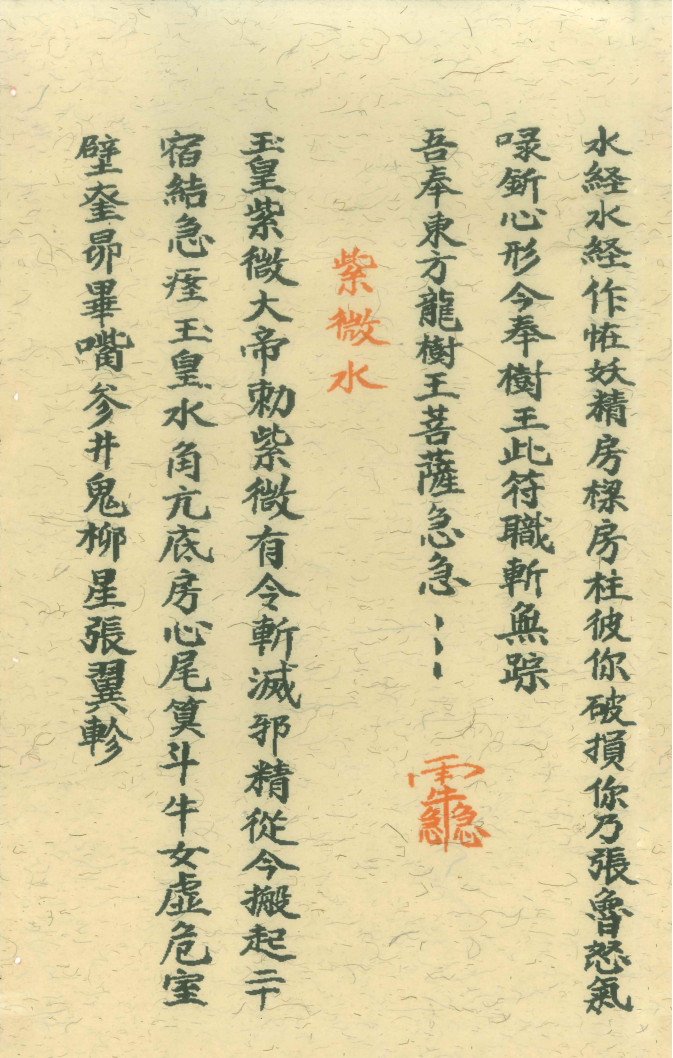 水経水経作恠妖精房樑房柱彼你破損你乃張魯怒氣
喙斩心形今奉樹王此符職斬無踪
吾奉東方龍樹王菩薩急急
紫微水
玉皇紫微大帝勅紫微有令斬滅邪精從今搬起二十
宿結急痊玉皇水角亢底房心尾箕斗牛女虚危室
壁奎昴畢嘴參井鬼柳星張翼軫